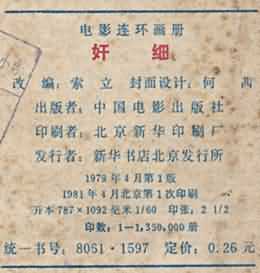 电影连环画册
奸细
改编：索立 封面设计：何茜
出版者：中国电影出版社
印刷者：北京新华印刷厂
发行者：新华书店北京发行所
1979年4月第1版
1981年4月北京第1次印刷
开本787×1092毫米1/60 印张：2 1/2
印数：1—1,350,000册
统一书号：8061·1597 定价：0.26元